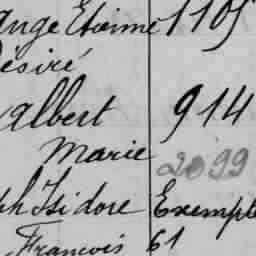 ange Etienne 1105
Désiré
albert 914
Marie 2099
ph Isidore Exempt
François 61